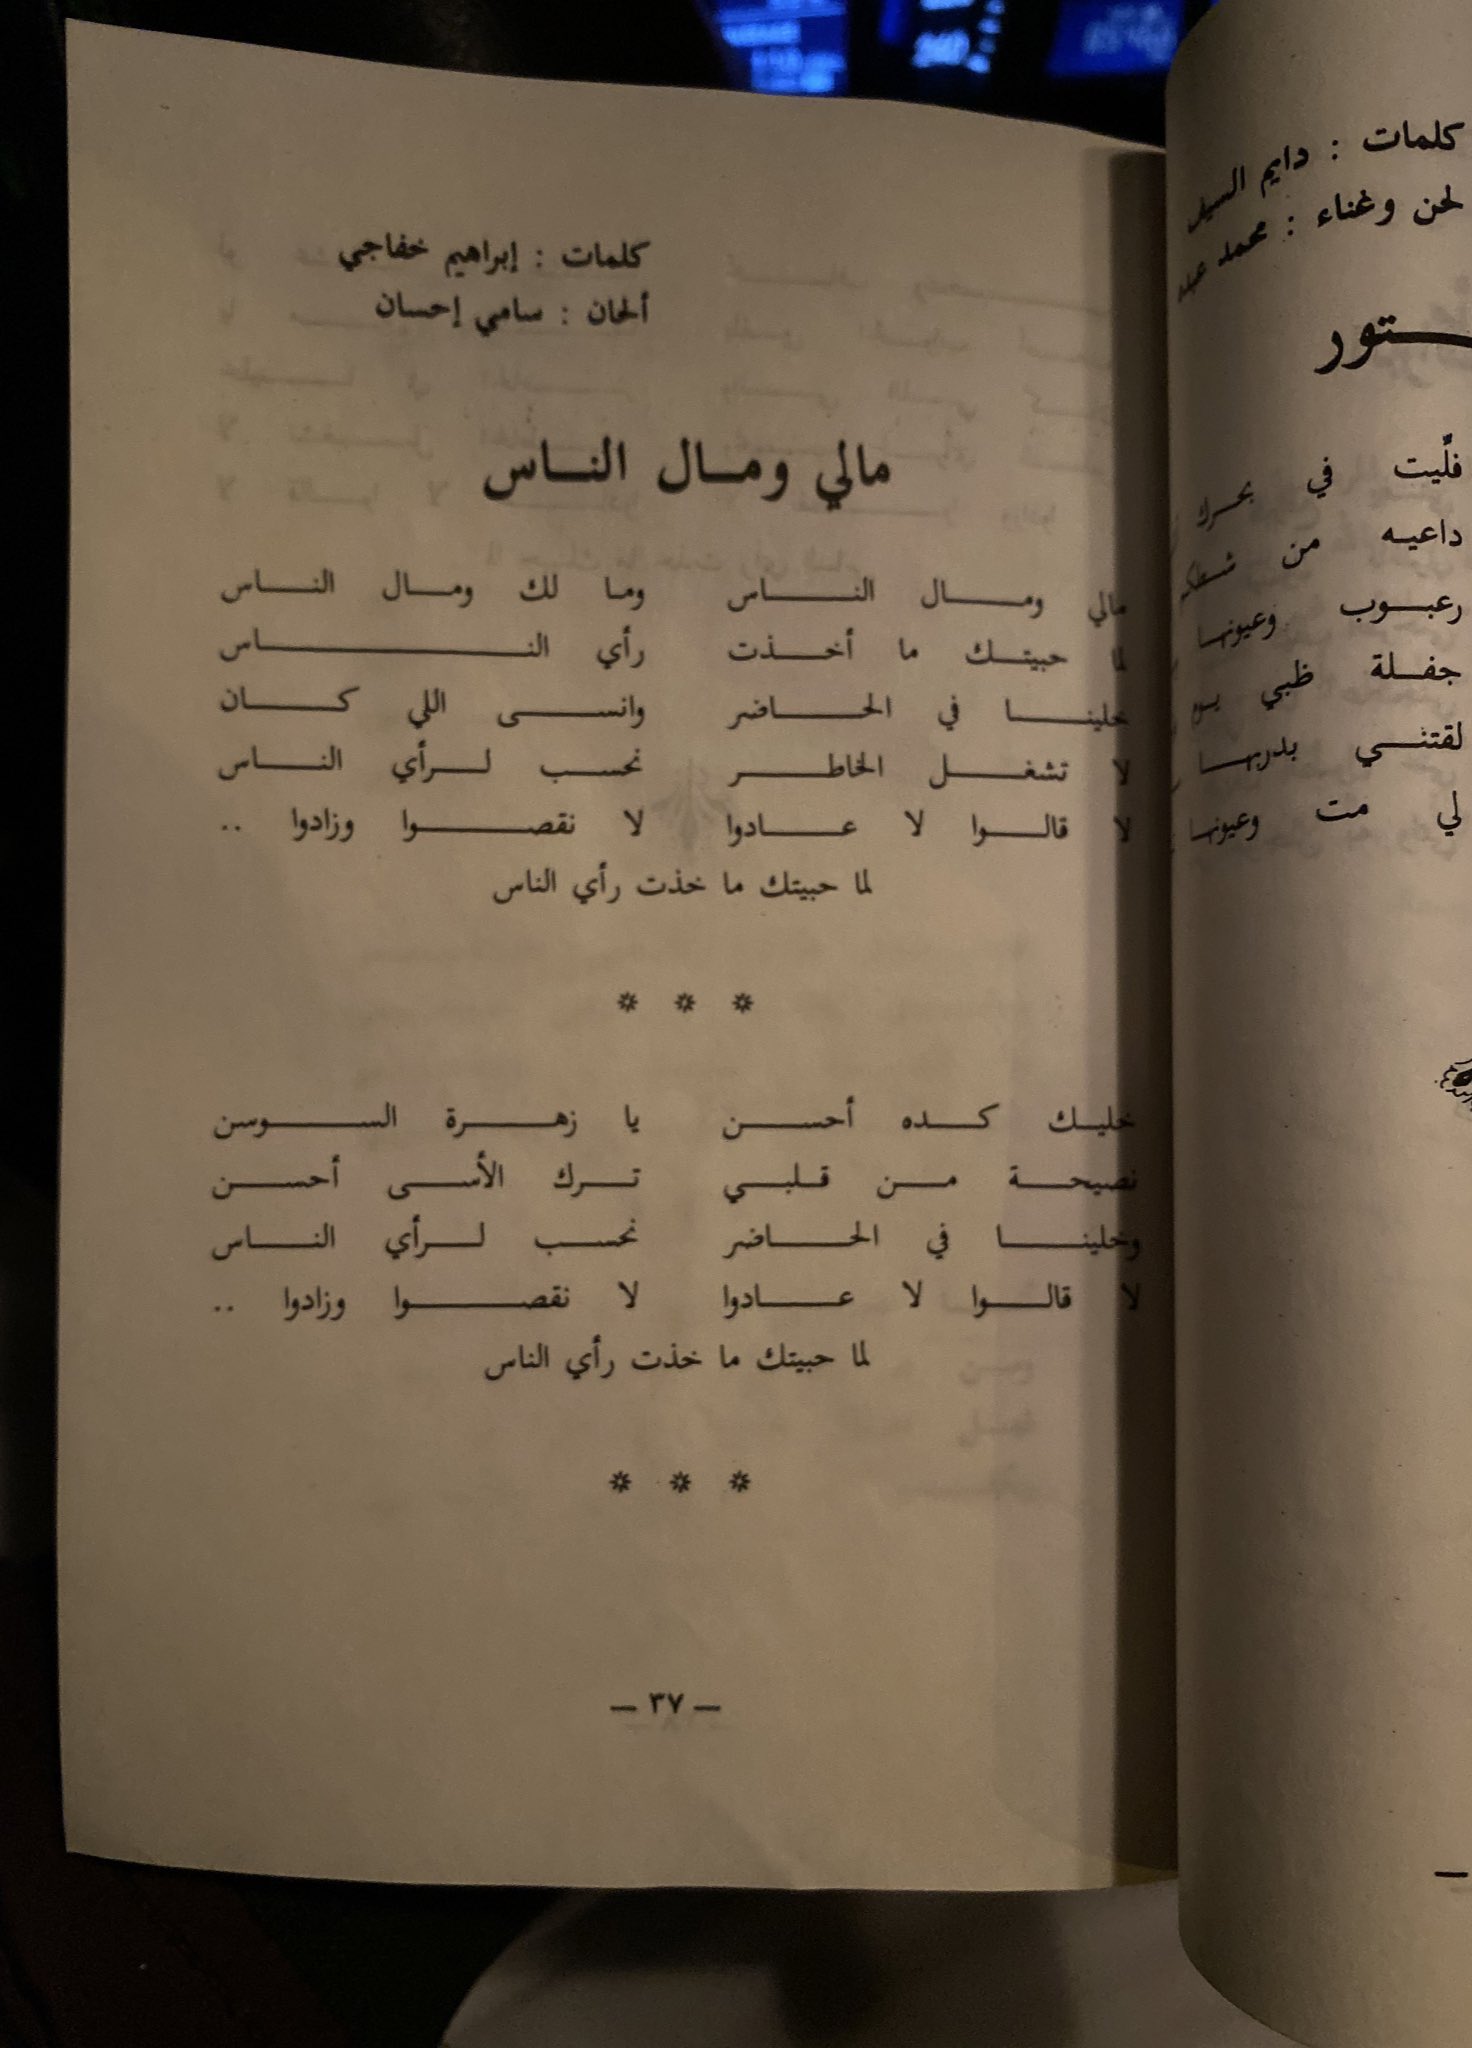 كلمات : دايم السيف
لحن وغناء : محمد عبده
فلّيت في بحرك
داعيه من
رعبوب وعيونها
جفلة ظبي يوم
لقتني بدربها
لي مت وعيونها
كلمات : إبراهيم خفاجي
ألحان : سامي إحسان
مالي ومال الناس
مالي ومال الناس وما لك ومال الناس
لما حبيتك ما أخذت رأي الناس
خلينا في الحاضر وانسى اللي كان
لا تشغل الخاطر نحسب لرأي الناس
لا قالوا لا عادوا لا نقصوا وزادوا ..
لما حبيتك ما خذت رأي الناس
* * *
خليك كده أحسن يا زهرة السوسن
نصيحة من قلبي ترك الأسى أحسن
وخلينا في الحاضر نحسب لرأي الناس
لا قالوا لا عادوا لا نقصوا وزادوا ..
لما حبيتك ما خذت رأي الناس
* * *
— ٣٧ —